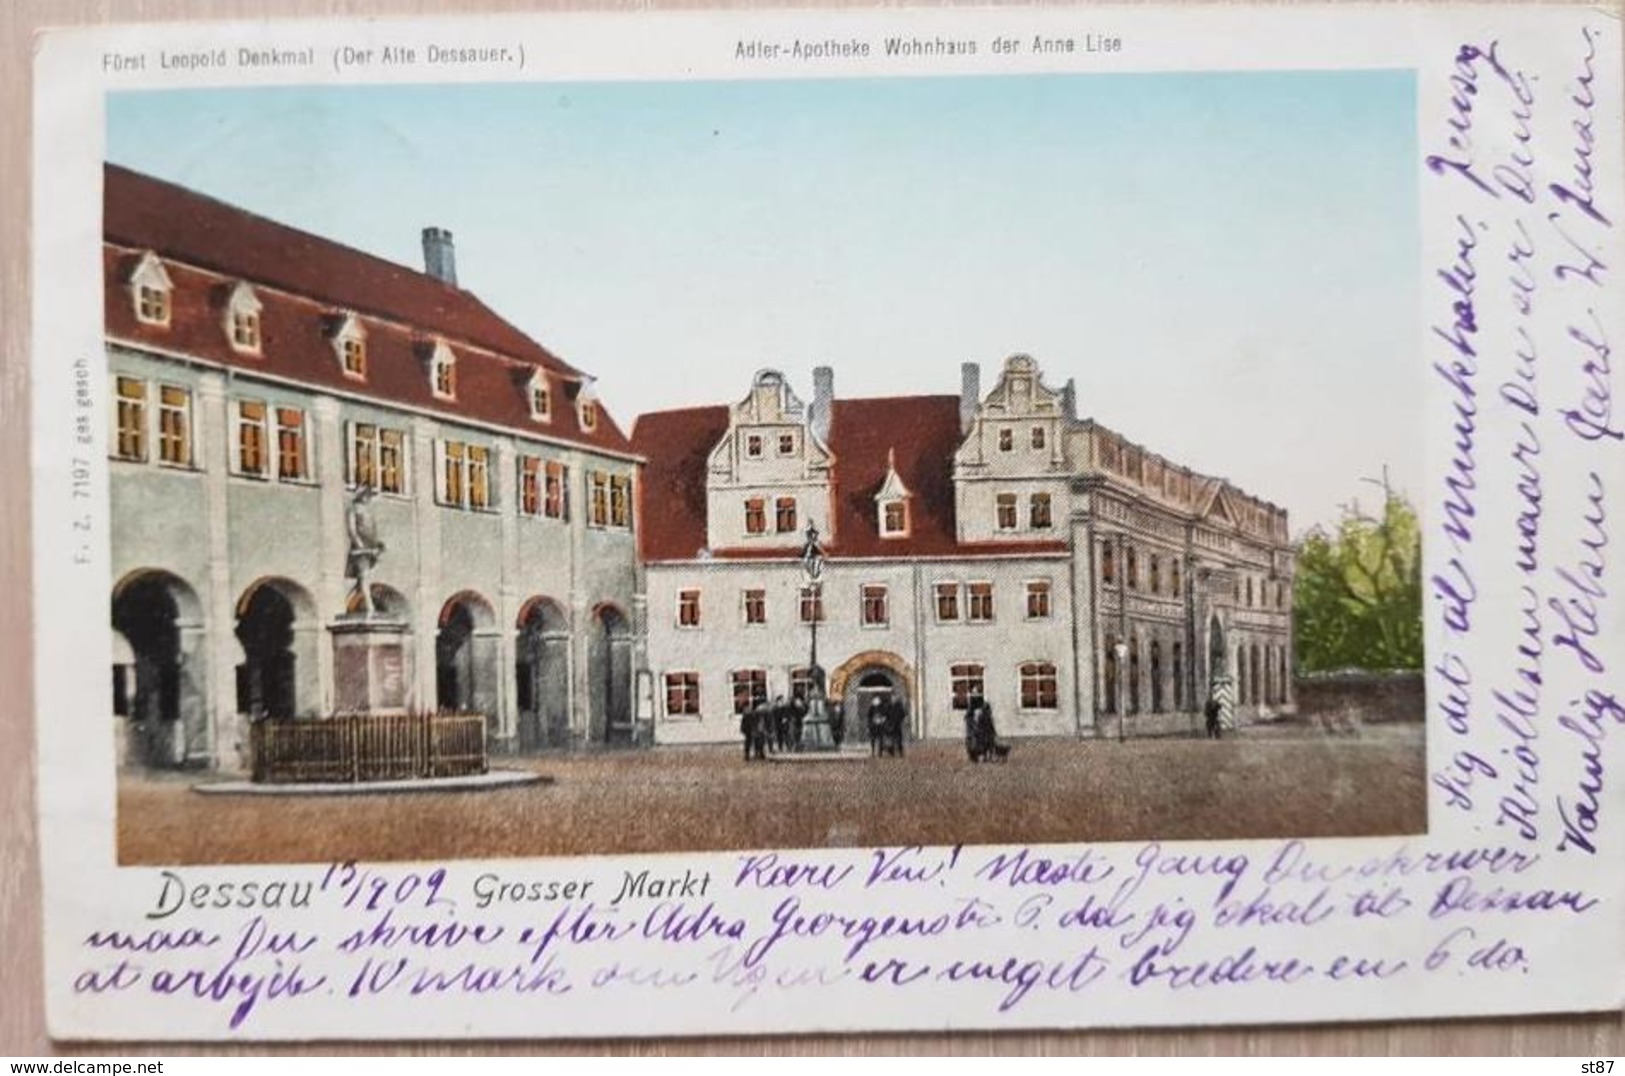 Fürst Leopold Denkmal (Der Alte Dessauer.)
Adler-Apotheke Wohnhaus der Anna Lise
F. Z. 7197 ges gesch
Dessau 13/1902 Grosser Markt
Kære Ven! Næste Gang Du skriver
maa Du skrive efter Adrs Georgenstr 6. da jeg skal til Dessau
at arbejde. 10 mark om Ugen er meget bedre en 6 do.
Sig det til Munkholm, Jensen
Krøllesen naar Du ser Dem.
Venlig Hilsen Carl W. Jensen.
Delcampe.net
st87